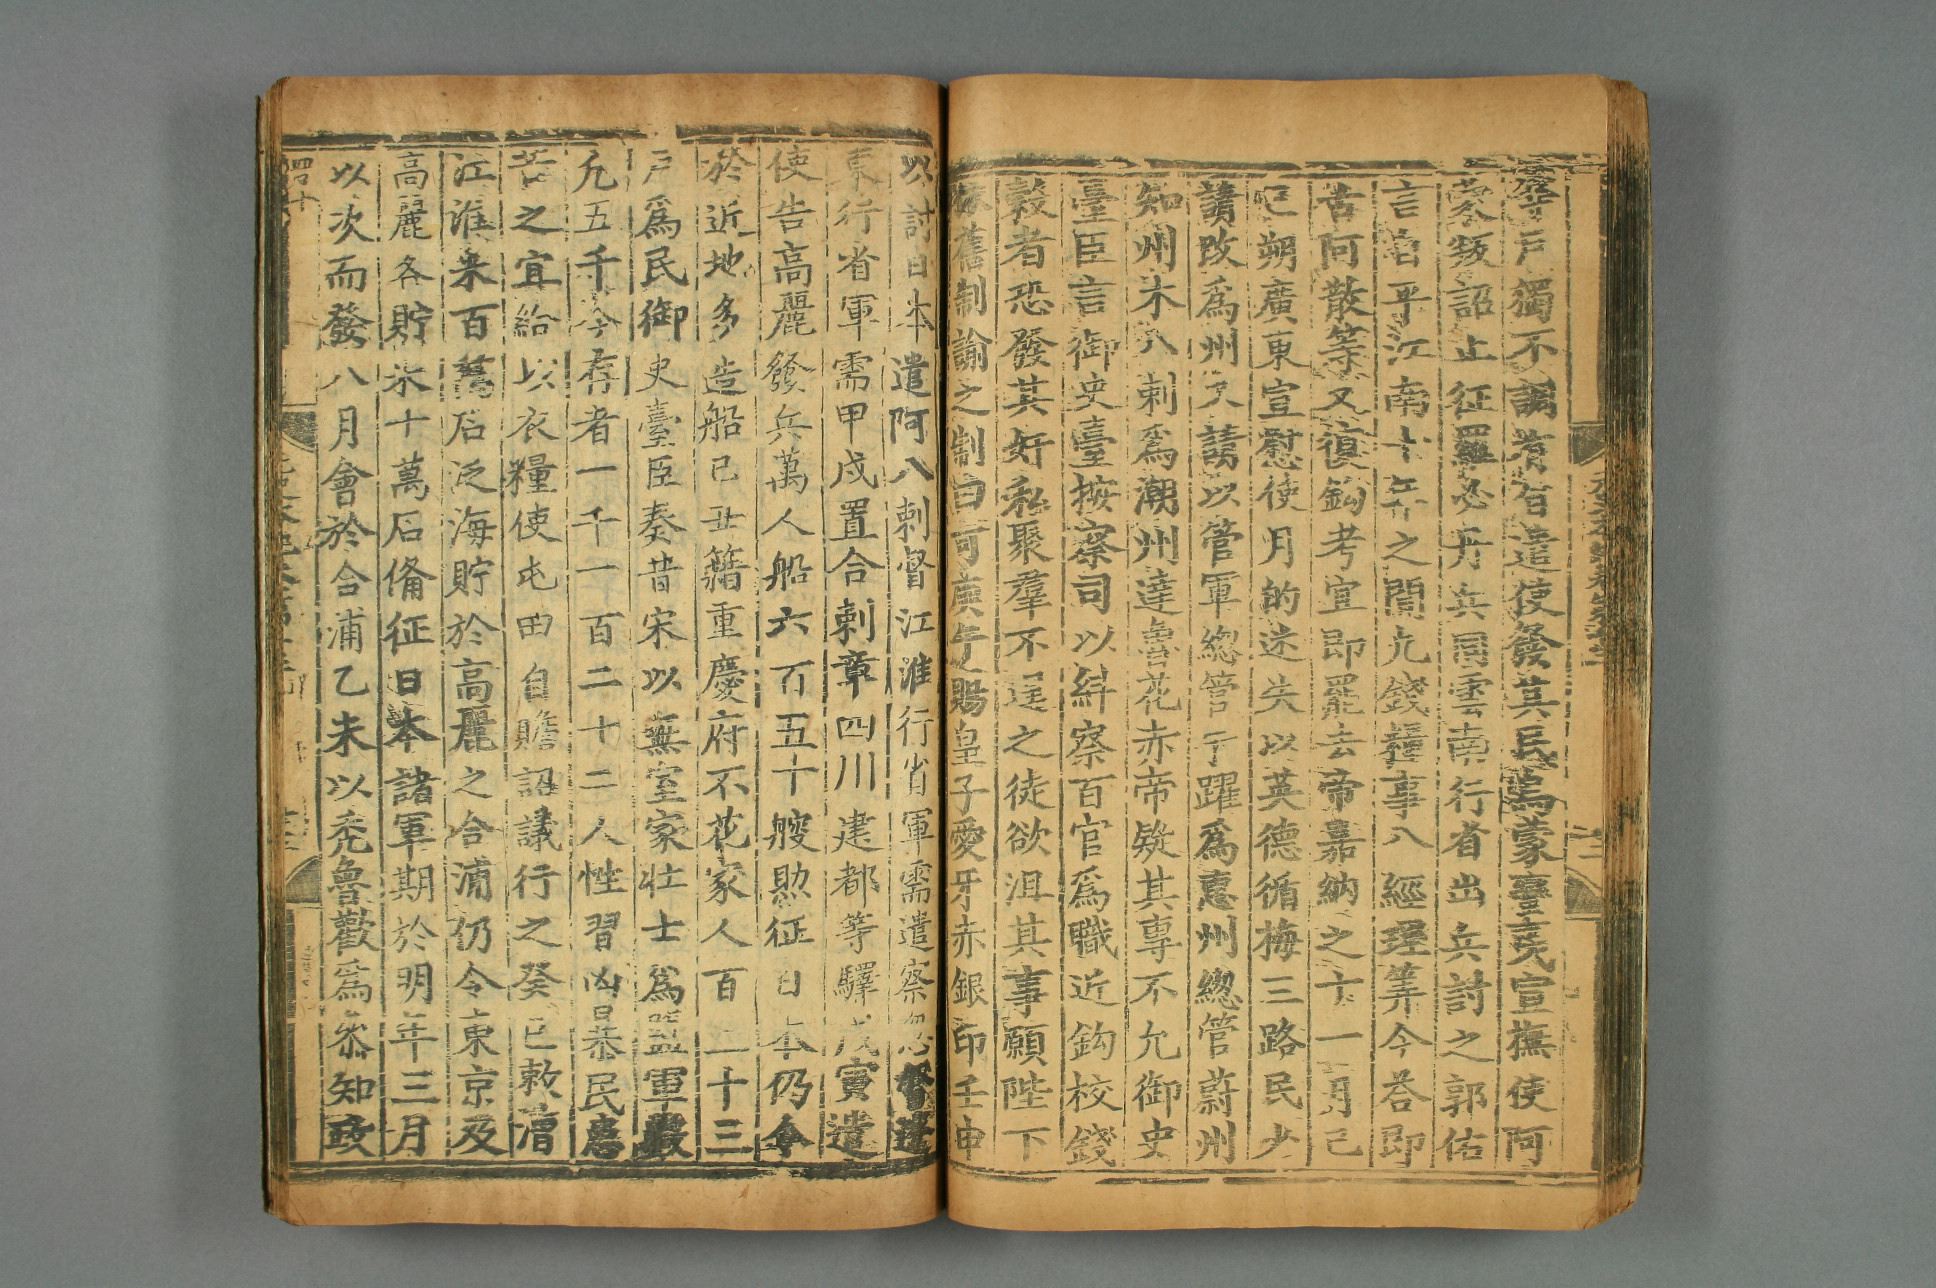 戶獨不調者皆遣使發其民萬蒙臺𡗝宣撫使阿
蒙叛詔止征羅必丹兵同雲南行省出兵討之郭佑
言自平江南十年之間凡錢糧事八經理筭今荅即
苦阿散等又復鈎考宜即罷去帝嘉納之十一月己
巳朔廣東宣慰使月的迷失以英德循梅三路民少
請改為州又請以管軍總管于躍為惠州總管蔚州
知州木八剌為潮州達魯花赤帝疑其專不允御史
臺臣言御史臺按察司以糾察百官為職近鈎校錢
穀者恐發其奸私聚羣不逞之徒欲沮其事願陛下
依舊制諭之制曰可庚午賜皇子愛牙赤銀印壬申
以討日本遣阿八剌督江淮行省軍需遣察忽督遼
東行省軍需甲戌置合剌章四川建都等驛戊寅遣
使告高麗發兵萬人船六百五十艘助征日本仍令
於近地多造船己丑籍重慶府不花家人百二十三
戶為民御史臺臣奏昔宋以無室家壯士為鹽軍數
凡五千今存者一千一百二十二人性習凶暴民患
苦之宜給以衣糧使屯田自贍詔議行之癸巳敕漕
江淮米百萬石泛海貯於高麗之合浦仍令東京及
高麗各貯米十萬石備征日本諸軍期於明年三月
以次而發八月會於合浦乙未以禿魯歡為叅知政